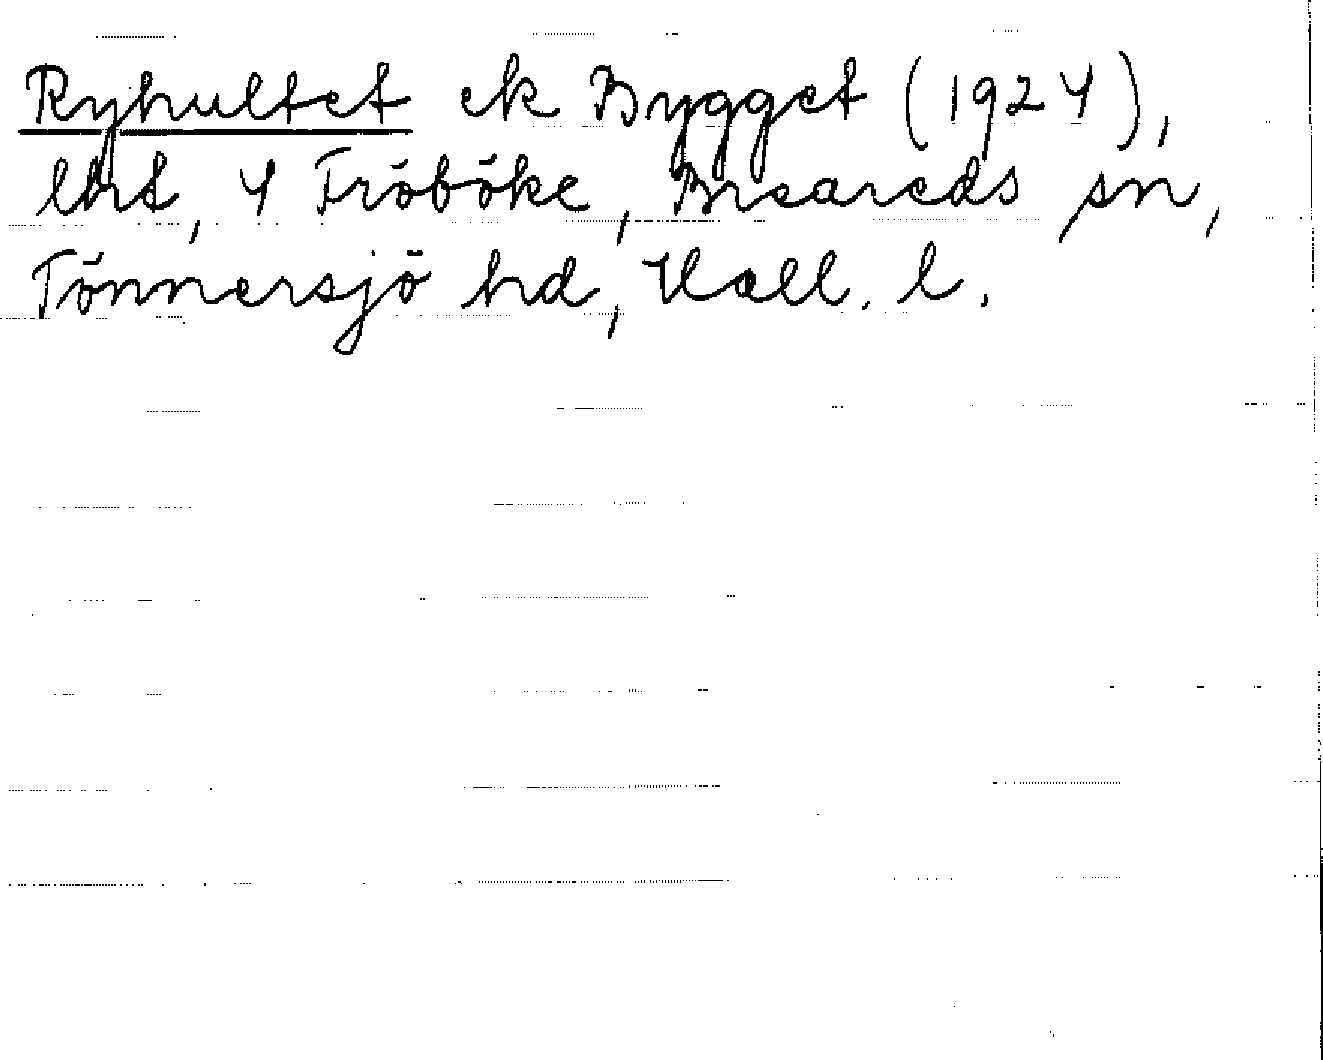 Ryhultet ek Bygget (1924),
lht, 4 Fröböke, Breareds sn,
Tönnersjö hd, Hall. l.